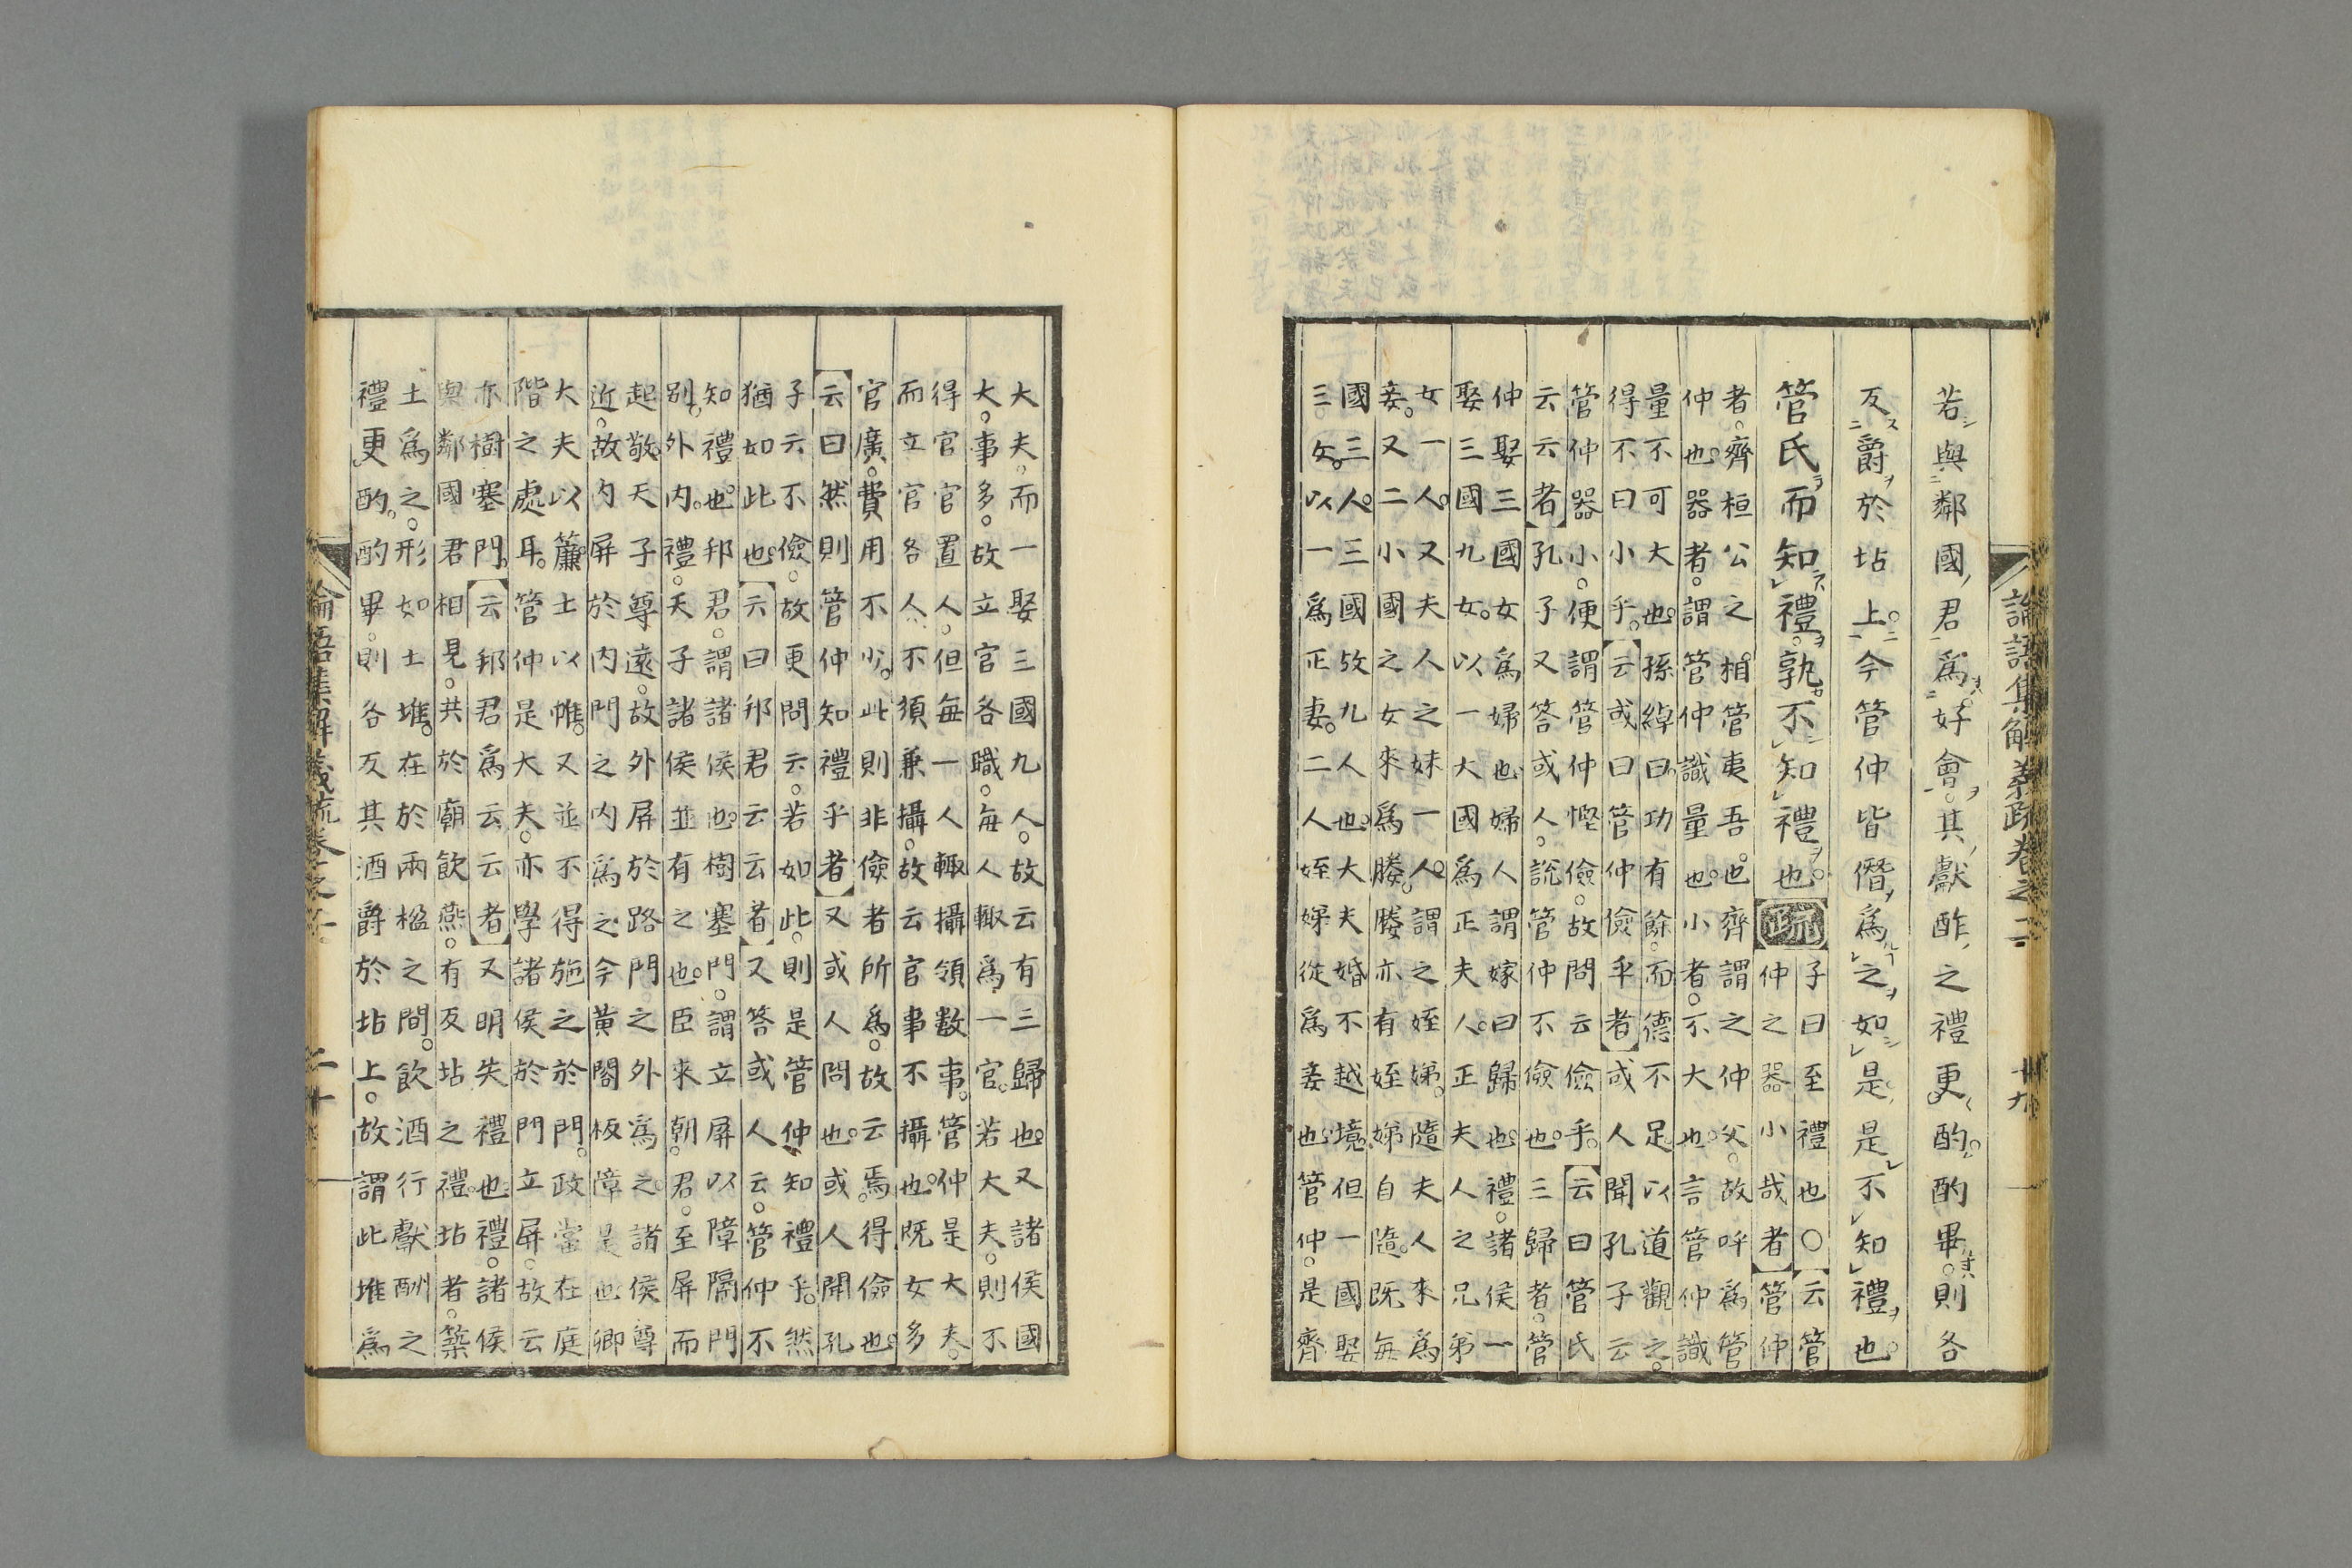 論語集解義疏卷之二　廿九
若與鄰國君爲好會其獻酢之禮更酌酌畢則各
反爵於坫上今管仲皆僭爲之如是是不知禮也
管氏而知禮孰不知禮也疏
子曰至禮也○云管
仲之器小哉者管仲
者齊桓公之相管夷吾也齊謂之仲父故呼爲管
仲也器者謂管仲識量也小者不大也言管仲識
量不可大也孫綽曰功有餘而德不足以道觀之
得不曰小乎云或曰管仲儉乎者或人聞孔子云
管仲器小便謂管仲慳儉故問云儉乎云曰管氏
云云者孔子又答或人說管仲不儉也三歸者管
仲娶三國女爲婦也婦人謂嫁曰歸也禮諸侯一
娶三國九女以一大國爲正夫人正夫人之兄弟
女一人又夫人之妹一人謂之姪娣隨夫人來爲
妾又二小國之女來爲媵媵亦有姪娣自隨既每
國三人三國故九人也大夫婚不越境但一國娶
三女以一爲正妻二人姪娣從爲妾也管仲是齊
大夫而一娶三國九人故云有三歸也又諸侯國
大事多故立官各職每人輙爲一官若大夫則不
得官官置人但每一人輙攝領數事管仲是大夫
而立官官各人不須兼攝故云官事不攝也既女多
官廣費用不少此則非儉者所爲故云焉得儉也
云曰然則管仲知禮乎者又或人問也或人聞孔
子云不儉故更問云若如此則是管仲知禮乎然
猶如此也云曰邦君云云者又答或人云管仲不
知禮也邦君謂諸侯也樹塞門謂立屏以障隔門
別外內禮天子諸侯並有之也臣來朝君至屏而
起敬天子尊遠故外屏於路門之外爲之諸侯尊
近故內屏於內門之內爲之今黃閤板障是也卿
大夫以簾士以帷又並不得施之於門政當在庭
階之處耳管仲是大夫亦學諸侯於門立屏故云
亦樹塞門云邦君爲云云者又明失禮也禮諸侯
與鄰國君相見共於廟飲燕有反坫之禮坫者築
土爲之形如土堆在於兩楹之間飲酒行獻酬之
禮更酌酌畢則各反其酒爵於坫上故謂此堆爲
論語集解義疏卷之二　二十